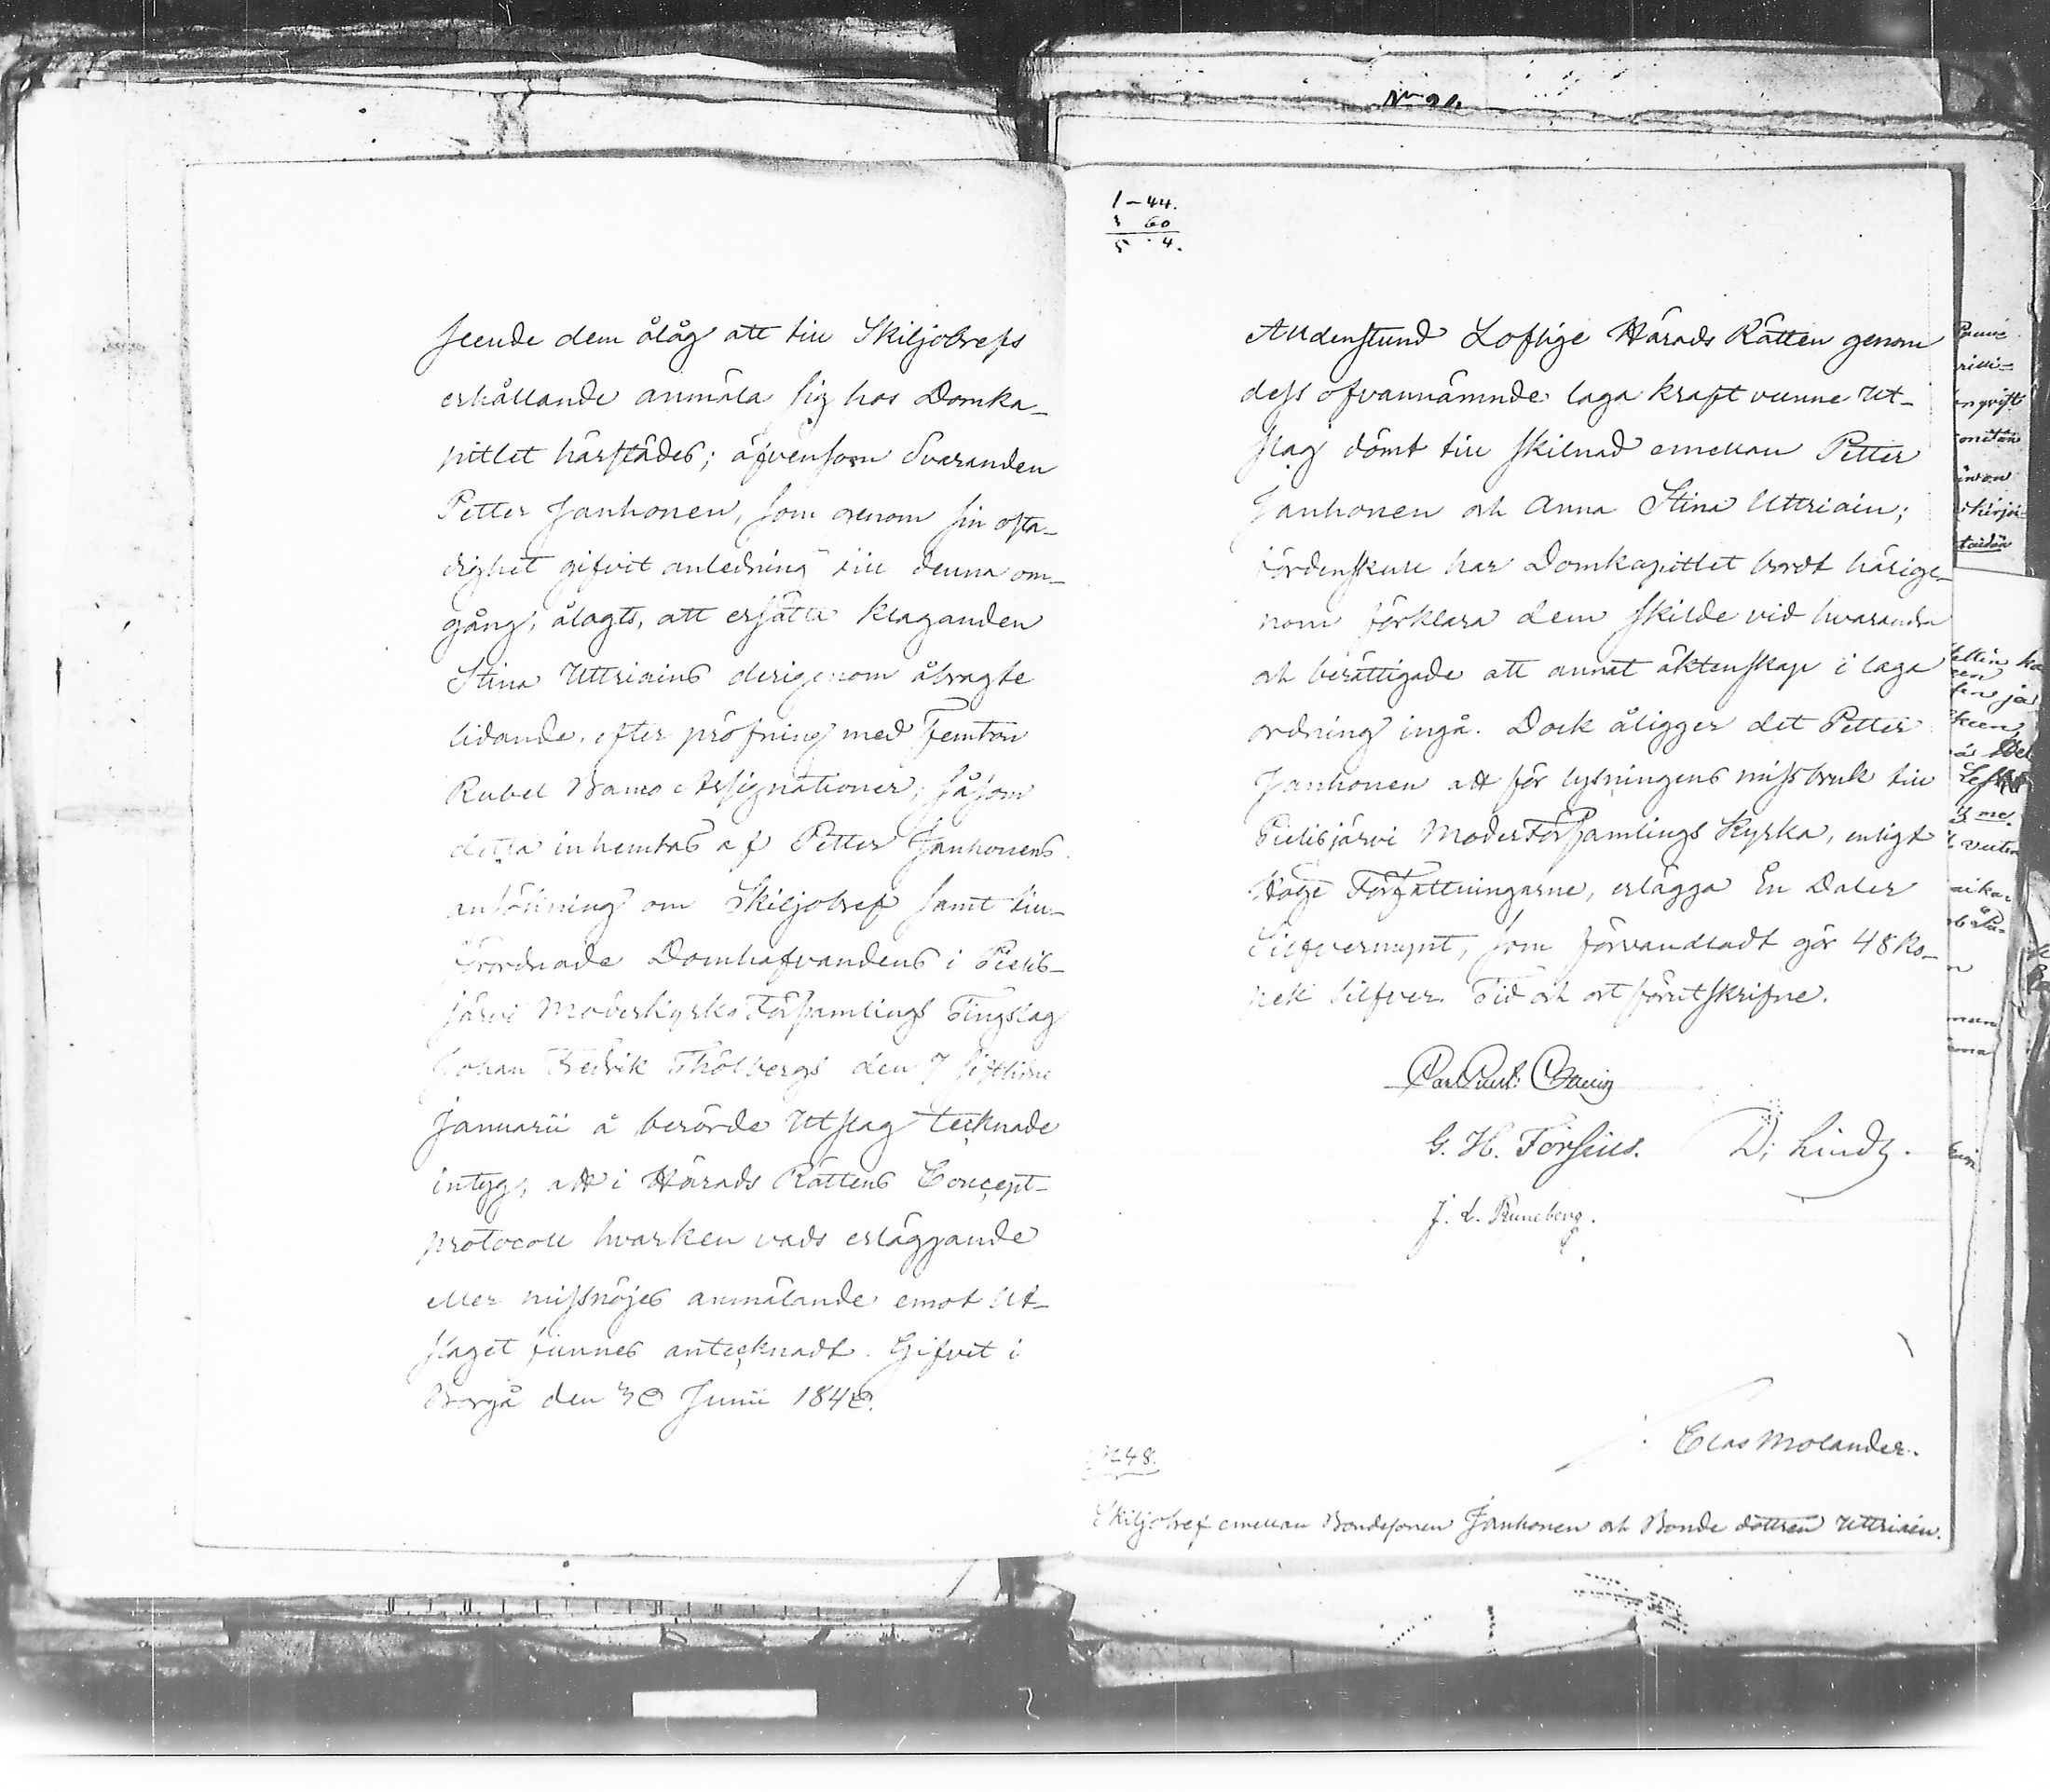 seende dem ålåg att till Skiljobrefs
erhållande anmäla sig hos Domka-
pitlet härstädes; äfvensom Svaranden
Petter Janhonen, som genom sin osta-
dighet gifvit anledning till denna om-
gång, ålagts, att ersätta Klaganden
Stina Uttriains derigenom åbragte
lidande, efter pröfning med Femton
Rubel Banco Assignationer; såsom
detta inhemtas af Petter Janhonens
ansökning om Skiljobref samt till-
förordnade Domhafvandens i Pielis-
järvi Moderkyrko Församlings Tingslag
Johan Fredrik Thölbergs den 7 sistlidne
Januarii å berörde Utslag tecknade
intyg, att i Härads Rättens Concept-
protocoll hvarken vads erläggande
eller missnöjes anmälande emot Ut-
slaget finnes antecknadt. Gifvit i
Borgå den 30 Junii 1842.
1-44.
3 60
5 4.
Alldenstund Loflige Härads Rätten genom
dess ofvannämnde laga kraft vunne Ut-
slag dömt till skilnad emellan Petter
Janhonen och Anna Stina Uttriain;
fördenskull har Domkapitlet bordt härige-
nom förklara dem skilde vid hvarandra
och berättigade att annat äktenskap i laga
ordning ingå. Dock åligger det Petter
Janhonen att för lysningens missbruk till
Pielisjärvi ModerFörsamlings Kyrka, enligt
Höge Författningarne, erlägga En Daler
Silfvermynt, som förvandladt gör 48 Ko-
pek silfver. Tid och ort förutskrifne.
G. H. Forsius.
J. L. Runeberg.
Clas Molander.
48.
Skiljobref emellan Bondesonen Janhonen och Bonde dottren Uttriain.